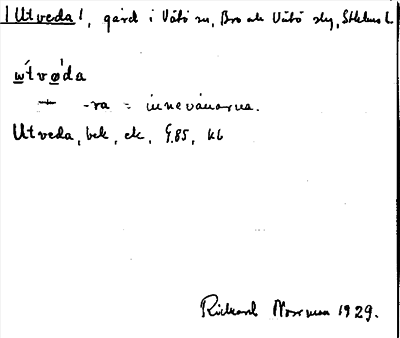 Utveda, gård i Vätö sn, Bro ok Vätö sky, Sthlms l.
wtvøda
-ra = innevånarna.
Utveda, bek, ek, G.85, kb
Rickard Norrman 1929.